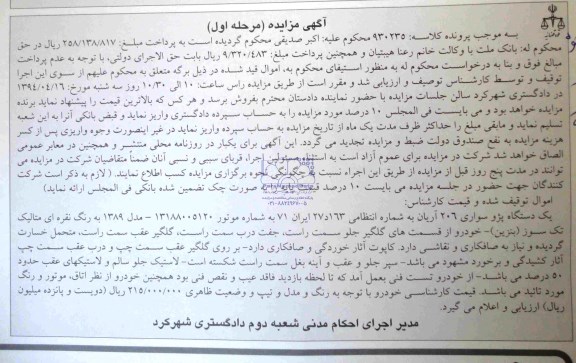 آگهی مزایده (مرحله اول)
به موجب پرونده کلاسه: ۹۳۰۲۳۵ محکوم علیه: اکبر صدیقی محکوم گردیده است به پرداخت مبلغ: ۲۵۸/۱۳۸/۸۱۷ ریال در حق
محکوم له: بانک ملت با وکالت خانم رعنا هیبتیان و همچنین پرداخت مبلغ: ۹/۳۲۰/۴۸۳ ریال بابت حق الاجرای دولتی، با توجه به عدم پرداخت
مبالغ فوق و بنا به درخواست محکوم له به منظور استیفای محکوم به، اموال قید شده در ذیل برگه متعلق به محکوم علیهم از سوی این اجرا
توقیف و توسط کارشناس توصیف و ارزیابی شد و مقرر است از طریق مزایده راس ساعت: ۱۰ الی ۱۰/۳۰ روز سه شنبه مورخ: ۱۳۹۴/۰۴/۱۶
در دادگستری شهرکرد سالن جلسات مزایده با حضور نماینده دادستان محترم بفروش برسد و هر کس که بالاترین قیمت را پیشنهاد نماید برنده
مزایده خواهد بود و می بایست فی المجلس ۱۰ درصد مورد مزایده را به حساب سپرده دادگستری واریز نماید و قبض بانکی آنرا به این شعبه
تسلیم نماید و مابقی مبلغ را حداکثر ظرف مدت یک ماه از تاریخ مزایده به حساب سپرده واریز نماید در غیر اینصورت وجوه واریزی پس از کسر
هزینه مزایده به نفع صندوق دولت ضبط و مزایده تجدید می گردد. این آگهی برای یکبار در روزنامه محلی منتشر و همچنین در معابر عمومی
الصاق خواهد شد شرکت در مزایده برای عموم آزاد است به استثناء مسئولین اجرا، قربای سببی و نسبی آنان ضمناً متقاضیان شرکت در مزایده می
توانند در مدت پنج روز قبل از مزایده از طریق این اجراء نسبت به چگونگی نحوه برگزاری مزایده کسب اطلاع نمایند. (لازم به ذکر است شرکت
کنندگان جهت حضور در جلسه مزایده می بایست ۱۰ درصد قیمت پایه را به صورت چک تضمین شده بانکی فی المجلس ارائه نماید)
اموال توقیف شده و قیمت کارشناس:
یک دستگاه پژو سواری ۲۰۶ آریان به شماره انتظامی ۱۶۳د۲۷ ایران ۷۱ به شماره موتور ۱۳۱۸۸۰۰۵۱۲۰ - مدل ۱۳۸۹ به رنگ نقره ای متالیک
تک سوز (بنزین)- خودرو از قسمت های گلگیر جلو سمت راست، جفت درب سمت راست، گلگیر عقب سمت راست، متحمل خسارت
گردیده و نیاز به صافکاری و نقاشی دارد. کاپوت آثار خوردگی و صافکاری دارد- بر روی گلگیر عقب سمت چپ و درب عقب سمت چپ
آثار کشیدگی و برخورد مشهود می باشد- سپر جلو و عقب و آینه بغل سمت راست شکسته است- لاستیک جلو سالم و لاستیکهای عقب حدود
۵۰ درصد می باشد- از خودرو تست فنی بعمل آمد که تا لحظه بازدید فاقد عیب و نقص فنی بود همچنین خودرو از نظر اتاق، موتور و رنگ
مورد تائید می باشد. قیمت کارشناسی خودرو با توجه به رنگ و مدل و تیپ و وضعیت ظاهری ۲۱۵/۰۰۰/۰۰۰ ریال (دویست و پانزده میلیون
ریال) ارزیابی و اعلام می گیرد.
مدیر اجرای احکام مدنی شعبه دوم دادگستری شهرکرد